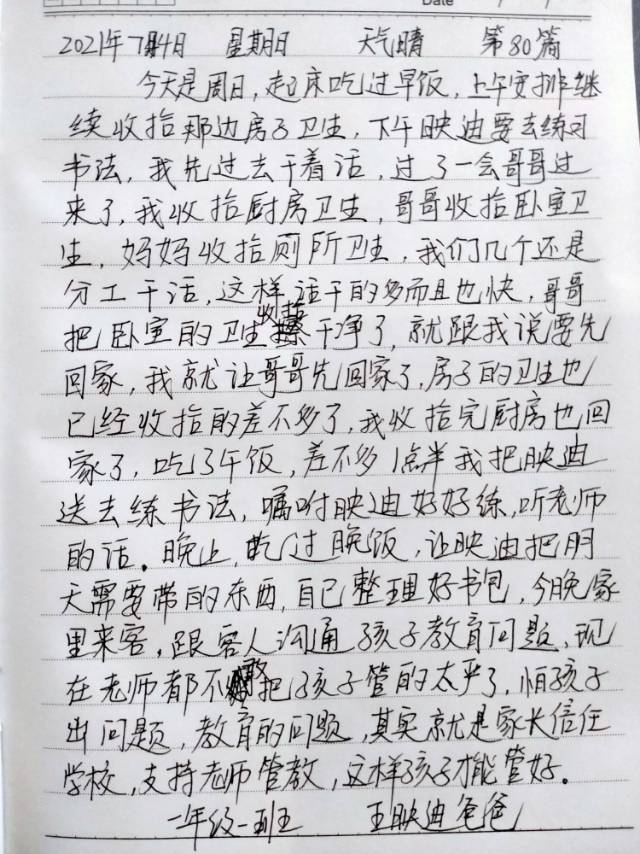 Date
2021年7月4日 星期日 天气晴 第80篇
今天是周日,起床吃过早饭,上午安排继
续收拾那边房子卫生,下午映迪要去练习
书法,我先过去干着活,过了一会哥哥过
来了,我收拾厨房卫生,哥哥收拾卧室卫
生,妈妈收拾厕所卫生,我们几个还是
分工干活,这样活干的多而且也快,哥哥
把卧室的卫生收拾干净了,就跟我说要先
回家,我就让哥哥先回家了,房子的卫生也
已经收拾的差不多了,我收拾完厨房也回
家了,吃了午饭,差不多1点半我把映迪
送去练书法,嘱咐映迪好好练,听老师
的话。晚上,吃过晚饭,让映迪把明
天需要带的东西,自己整理好书包,今晚家
里来客,跟客人沟通孩子教育问题,现
在老师都不敢把孩子管的太严了,怕孩子
出问题,教育的问题,其实就是家长信任
学校,支持老师管教,这样孩子才能管好。
一年级一班 王映迪爸爸